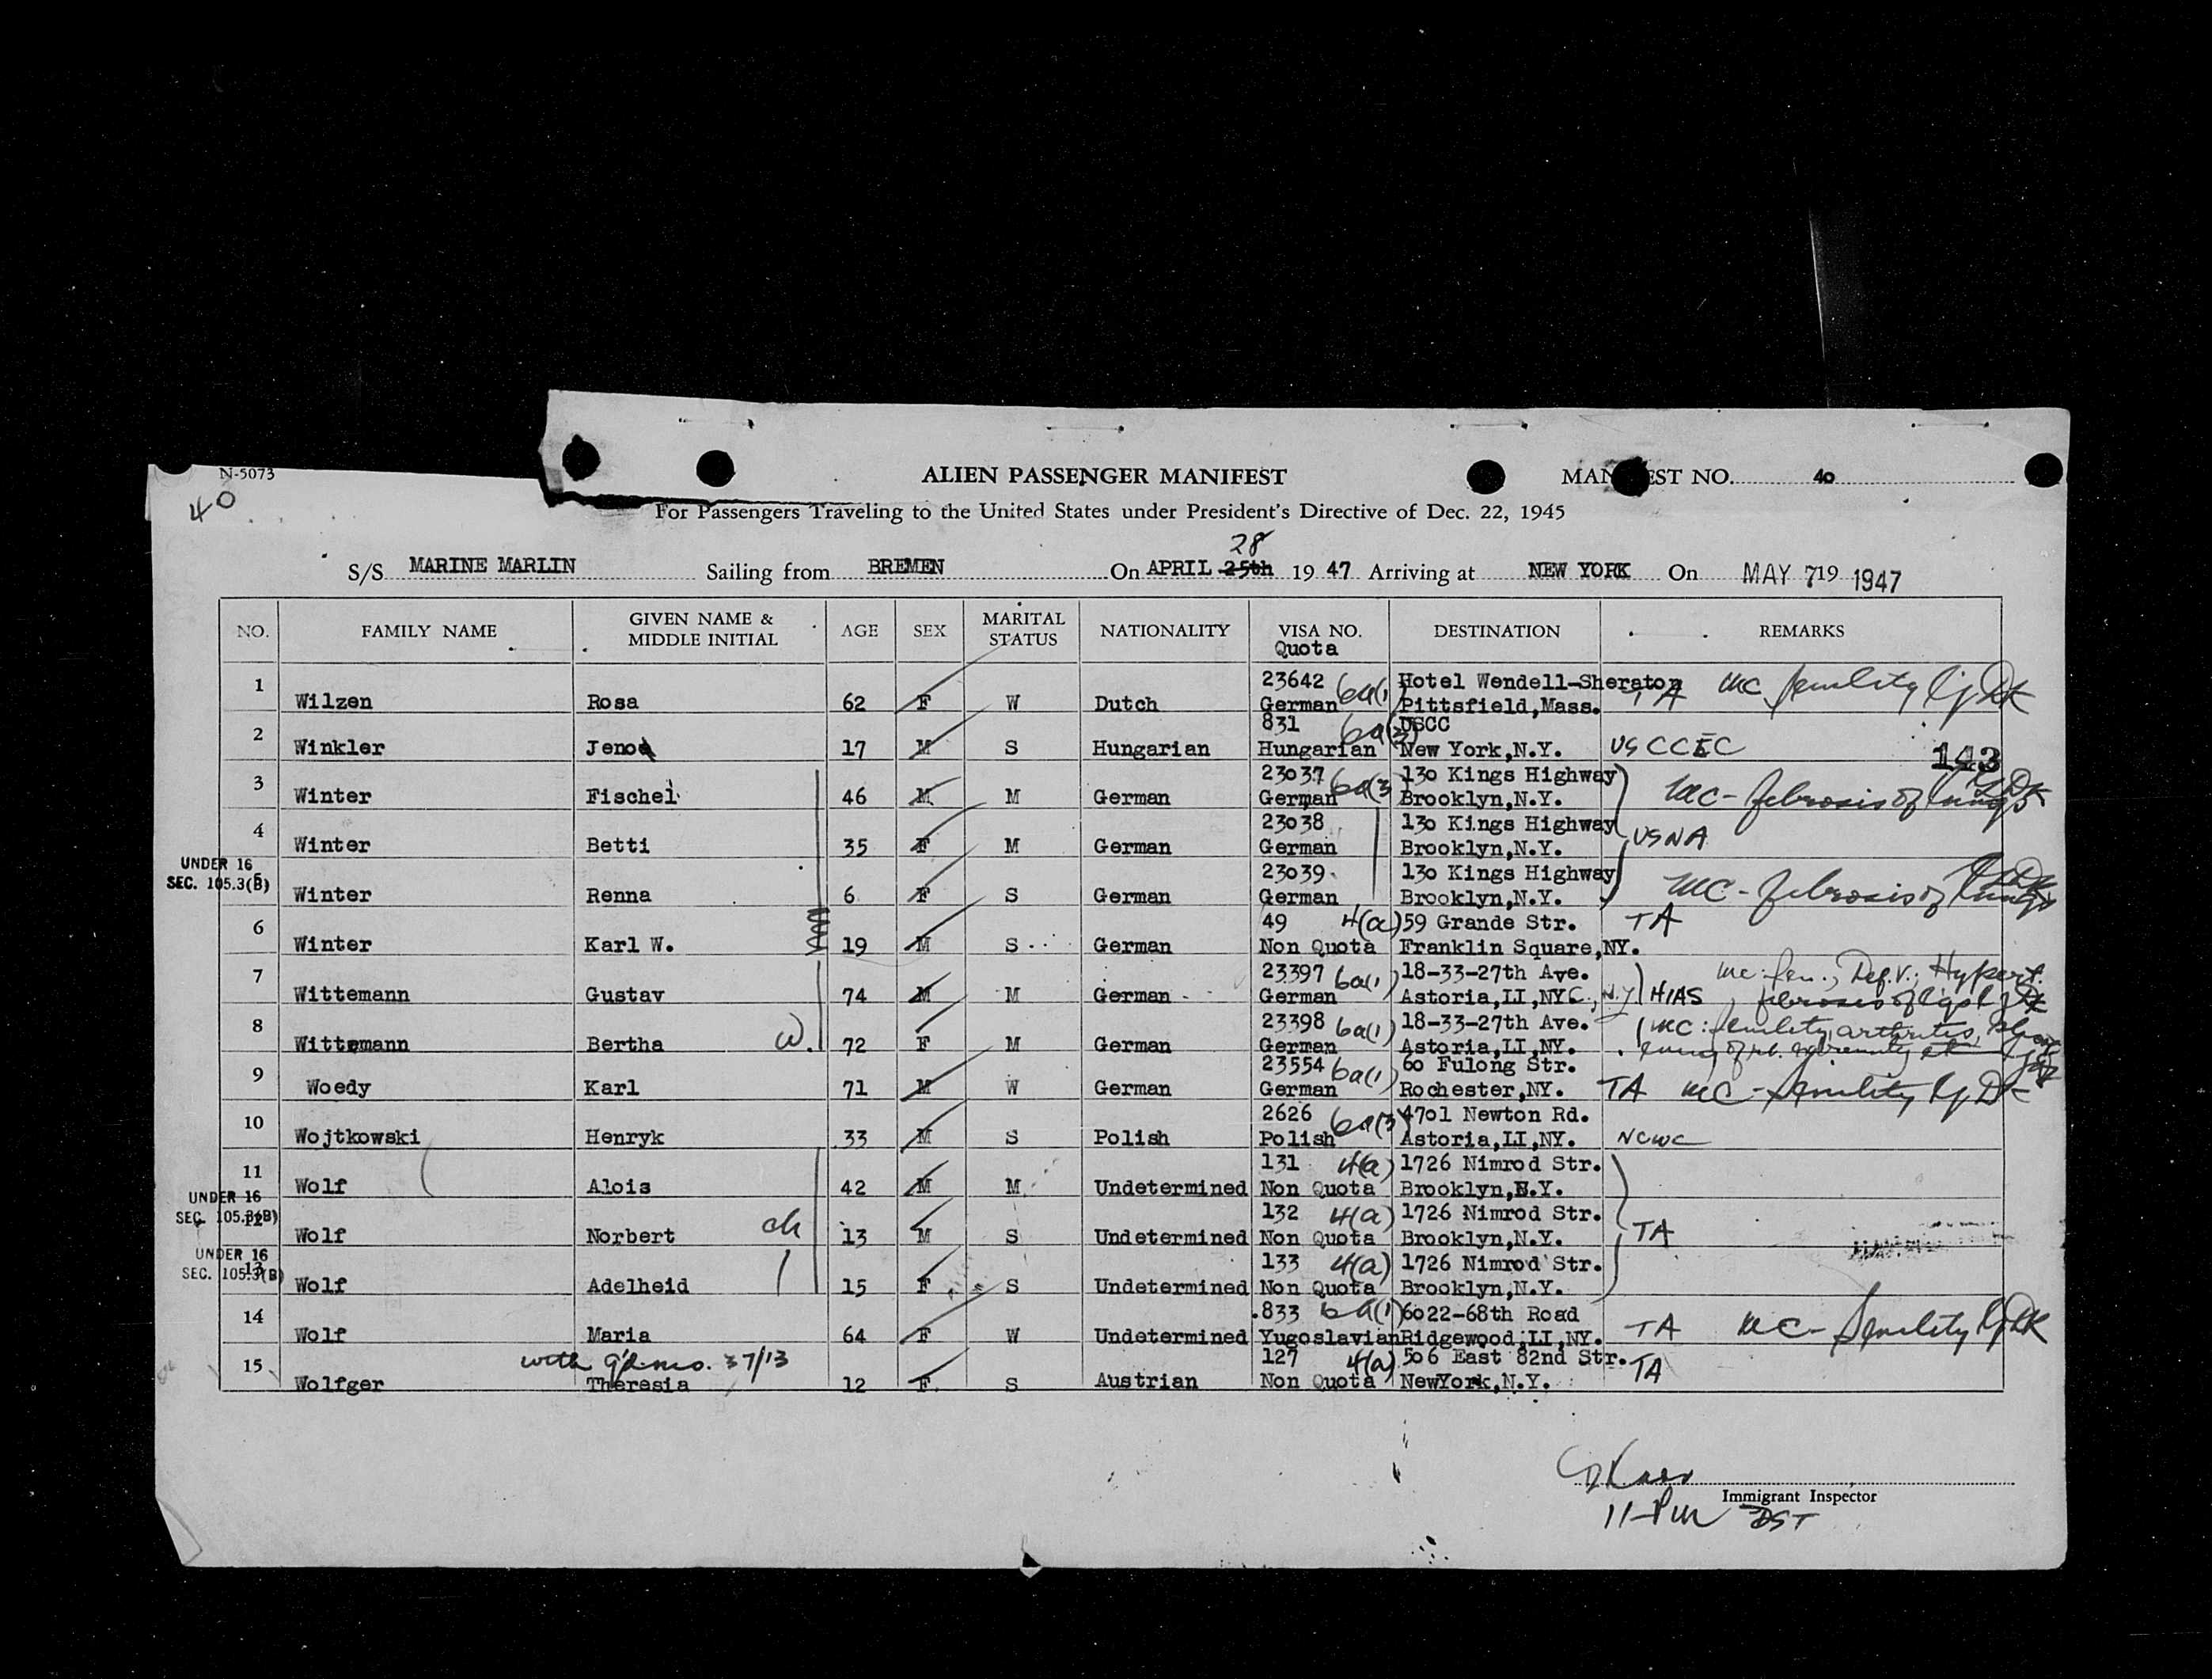 N-5073
ALIEN PASSENGER MANIFEST
MANIFEST NO. 40
40
For Passengers Traveling to the United States under President's Directive of Dec. 22, 1945
28
S/S MARINE MARLIN Sailing from BREMEN On APRIL 25th 19 47 Arriving at NEW YORK On MAY 7 19 1947
NO. FAMILY NAME GIVEN NAME & MIDDLE INITIAL AGE SEX MARITAL STATUS NATIONALITY VISA NO. Quota DESTINATION REMARKS
1 23642 6a(1) Hotel Wendell-Sheraton
Wilzen Rosa 62 F W Dutch German Pittsfield,Mass. TA MC Senility
2 831 6a(3) USCC
Winkler Jenoe 17 M S Hungarian Hungarian New York,N.Y. USCCEC 143
3 23037 6a(3 130 Kings Highway
Winter Fischel 46 M M German German Brooklyn,N.Y. MC - fibrosis of lungs
4 23038 130 Kings Highway
Winter Betti 35 F M German German Brooklyn,N.Y. USNA
UNDER 16
SEC. 105.3(B)
5 23039 130 Kings Highway
Winter Renna 6 F S German German Brooklyn,N.Y. MC - fibrosis of lungs
6 49 4(a) 59 Grande Str. TA
Winter Karl W. 19 M S German Non Quota Franklin Square,NY.
7 23397 6a(1) 18-33-27th Ave. MC: Sen., Def.V.; Hypert.
Wittemann Gustav 74 M M German German Astoria,LI,NYC., N.Y HIAS fibrosis of
8 23398 6a(1) 18-33-27th Ave. MC: Senility, arthritis,
Wittemann Bertha W. 72 F M German German Astoria,LI,NY.
9 23554 6a(1) 60 Fulong Str.
Woedy Karl 71 M W German German Rochester,NY. TA MC - Senility
10 2626 6a(3) 4701 Newton Rd.
Wojtkowski Henryk 33 M S Polish Polish Astoria,LI,NY. NCWC
11 131 4(a) 1726 Nimrod Str.
Wolf Alois 42 M M Undetermined Non Quota Brooklyn,N.Y.
UNDER 16
SEC. 105.3(B)
12 132 4(a) 1726 Nimrod Str.
Wolf Norbert ch 13 M S Undetermined Non Quota Brooklyn,N.Y. TA
UNDER 16
SEC. 105.3(B)
13 133 4(a) 1726 Nimrod Str.
Wolf Adelheid 15 F S Undetermined Non Quota Brooklyn,N.Y.
14 833 6a(1) 6022-68th Road
Wolf Maria 64 F W Undetermined Yugoslavian Ridgewood,LI,NY. TA MC - Senility
15 with g'dmo. 37/13 127 4(a) 506 East 82nd Str. TA
Wolfger Theresia 12 F S Austrian Non Quota NewYork,N.Y.
Immigrant Inspector
11-PM DST